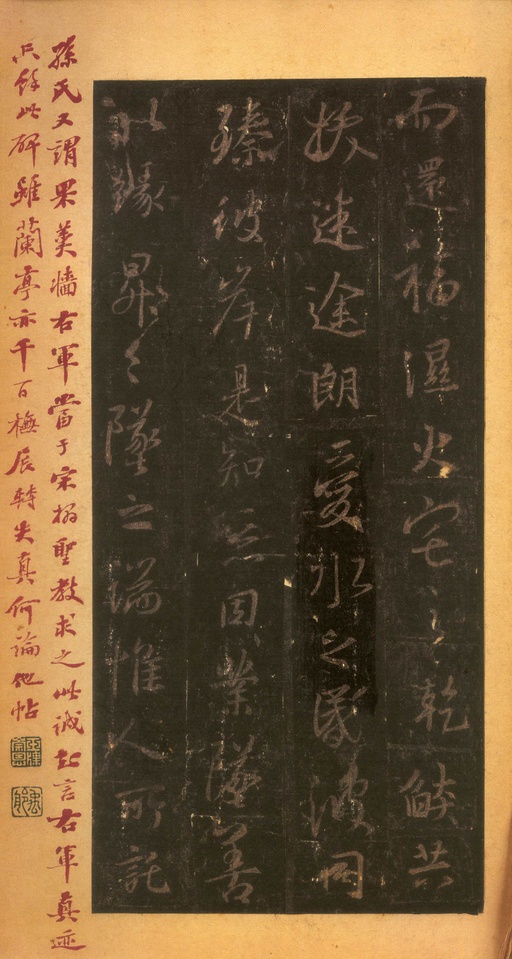 而還福濕火宅之乾燄共
拔迷途朗愛水之昏波同
臻彼岸是知惡因業墜善
以緣昇々墜之端惟人所託
孫氏又謂果羹墻右軍當于宋搨聖教求之此誠知言右軍真迹
只餘此碑雖蘭亭亦千百橅展轉失真何論他帖